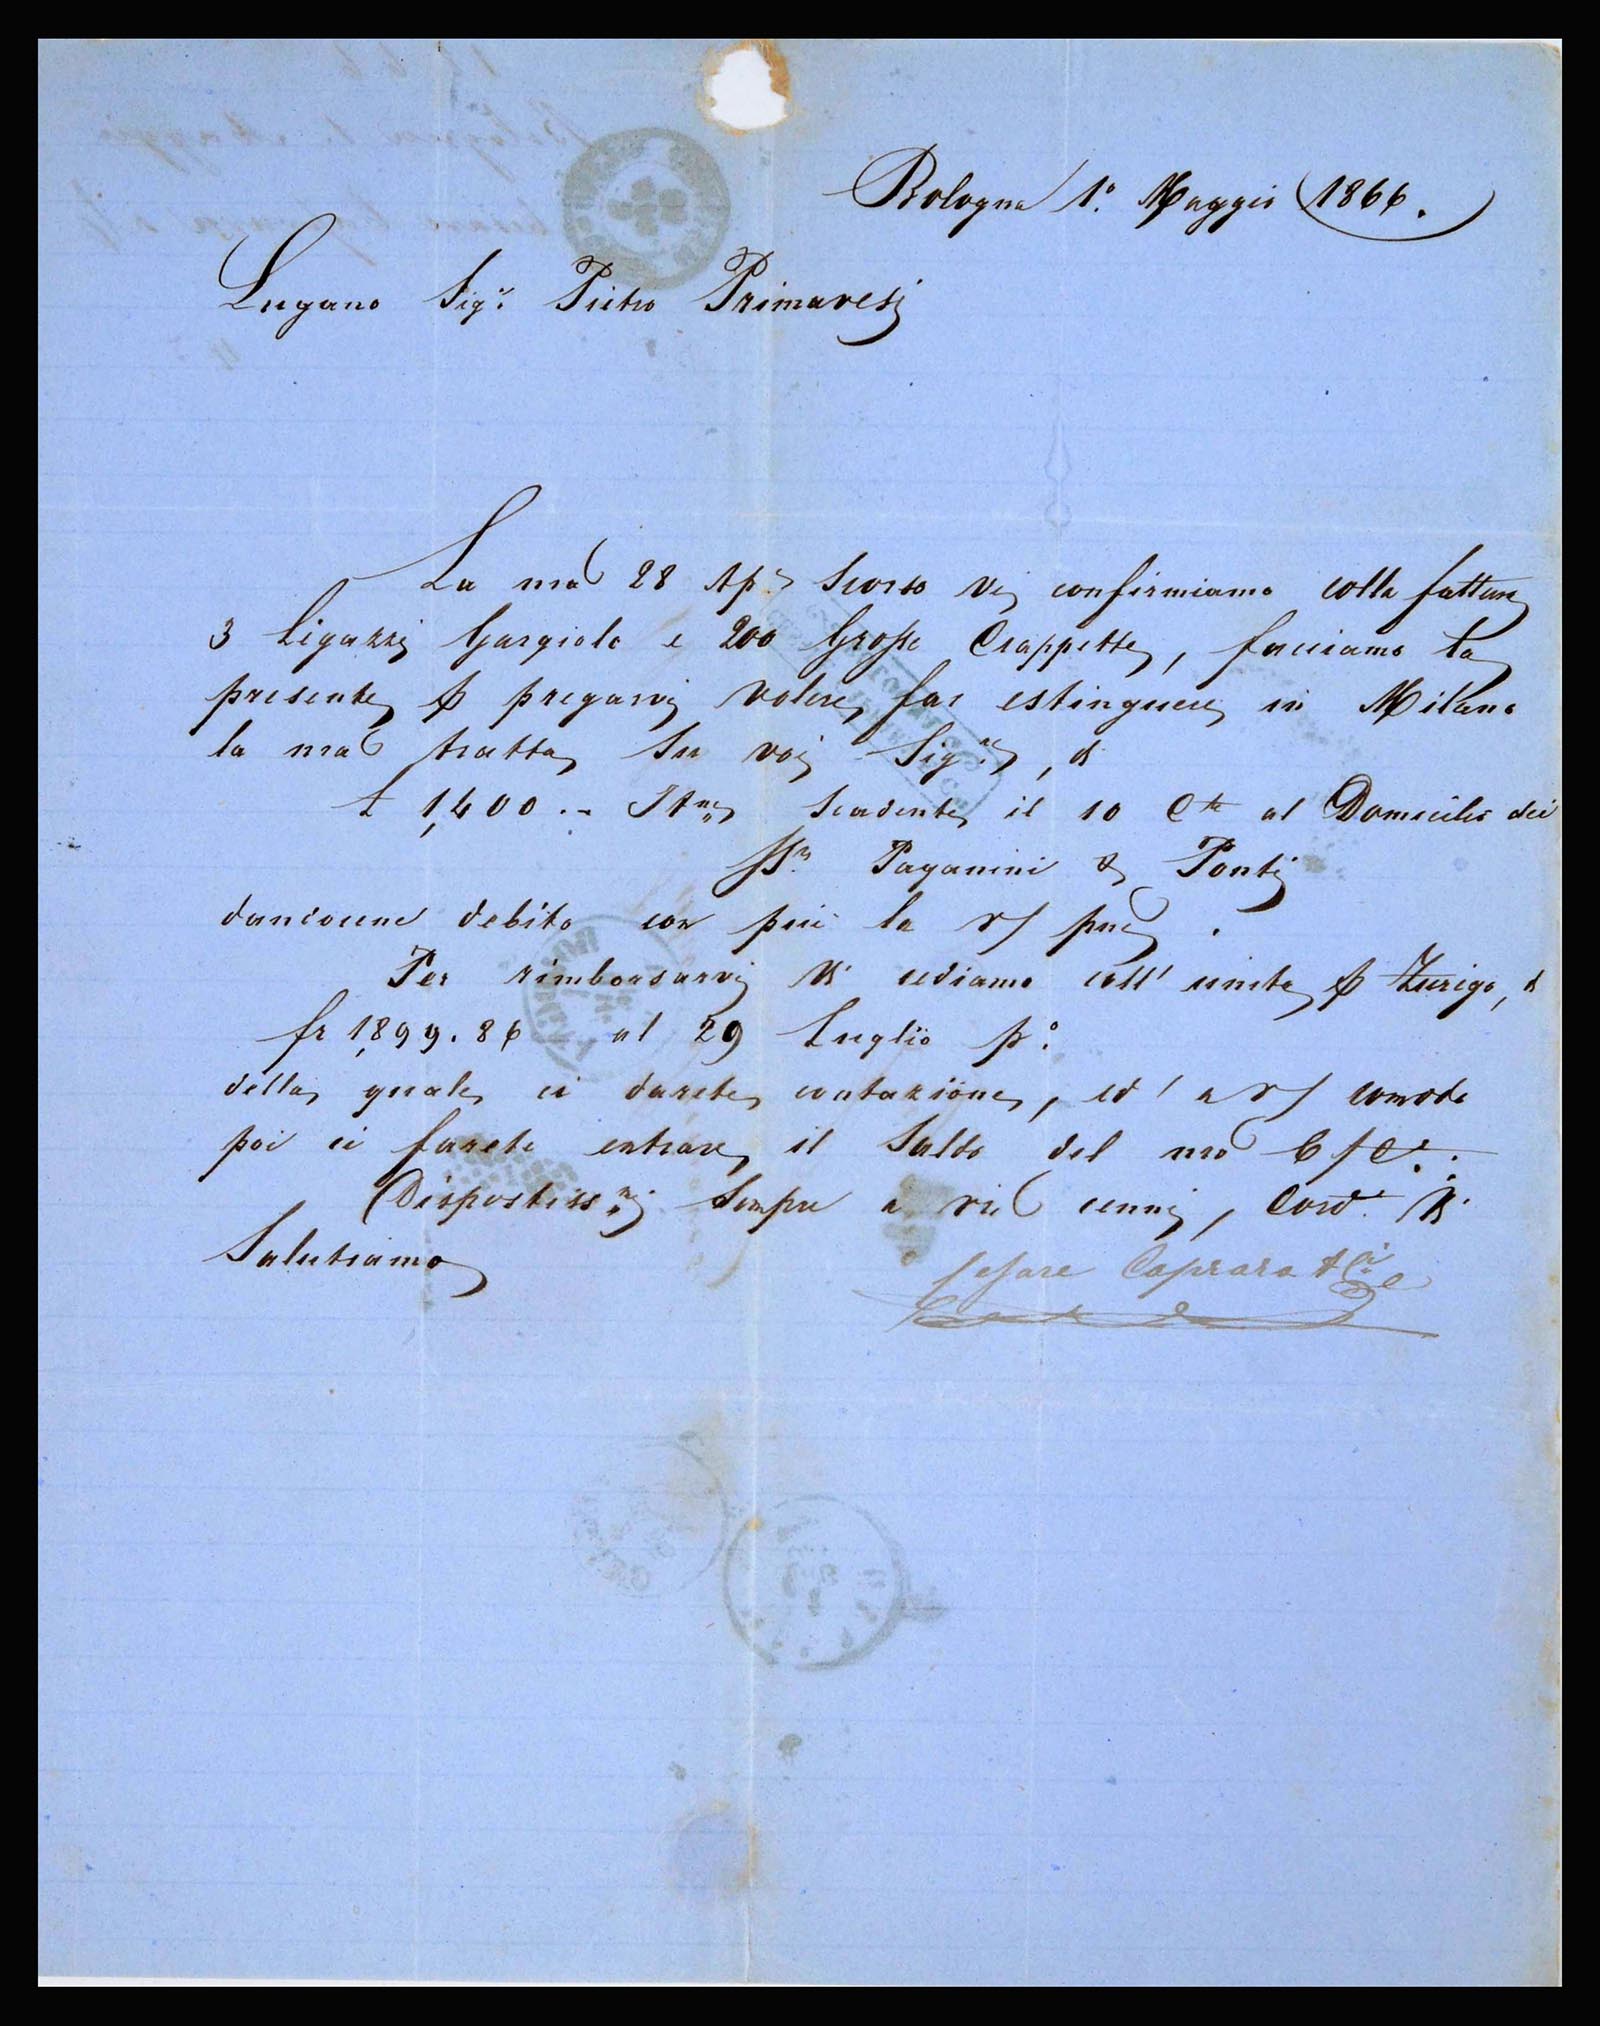 Bologna 1.º Maggio 1866.
Lugano Sigr. Pietro Primavesi
La nra 28 Ap.e Scorso Vi confirmiamo colla fattura
3 Ligazzi Gargiolo e 200 Grosse Crappette, facciamo la
presente p pregarvi volere far estinguere in Milano
la nra tratta Su voi Sig.re, d
£ 1,400.- It.ne Scadente il 10 C.te al Domicilio dei
SS.ri Paganini & Ponti
dandocene debito con più la v/ pne.
Per rimborsarvi Vi cediamo coll' unita p Zurigo, d
fr 1,899.86 al 29 Luglio p.º
della quale ci darete contazione, ed' a v/ comodo
poi ci farete entrare il Saldo del nro C/C.
Dispostiss.mi Sempre a vri cenni, Cord.e Vi
Salutiamo
Cesare Caprara & C.i